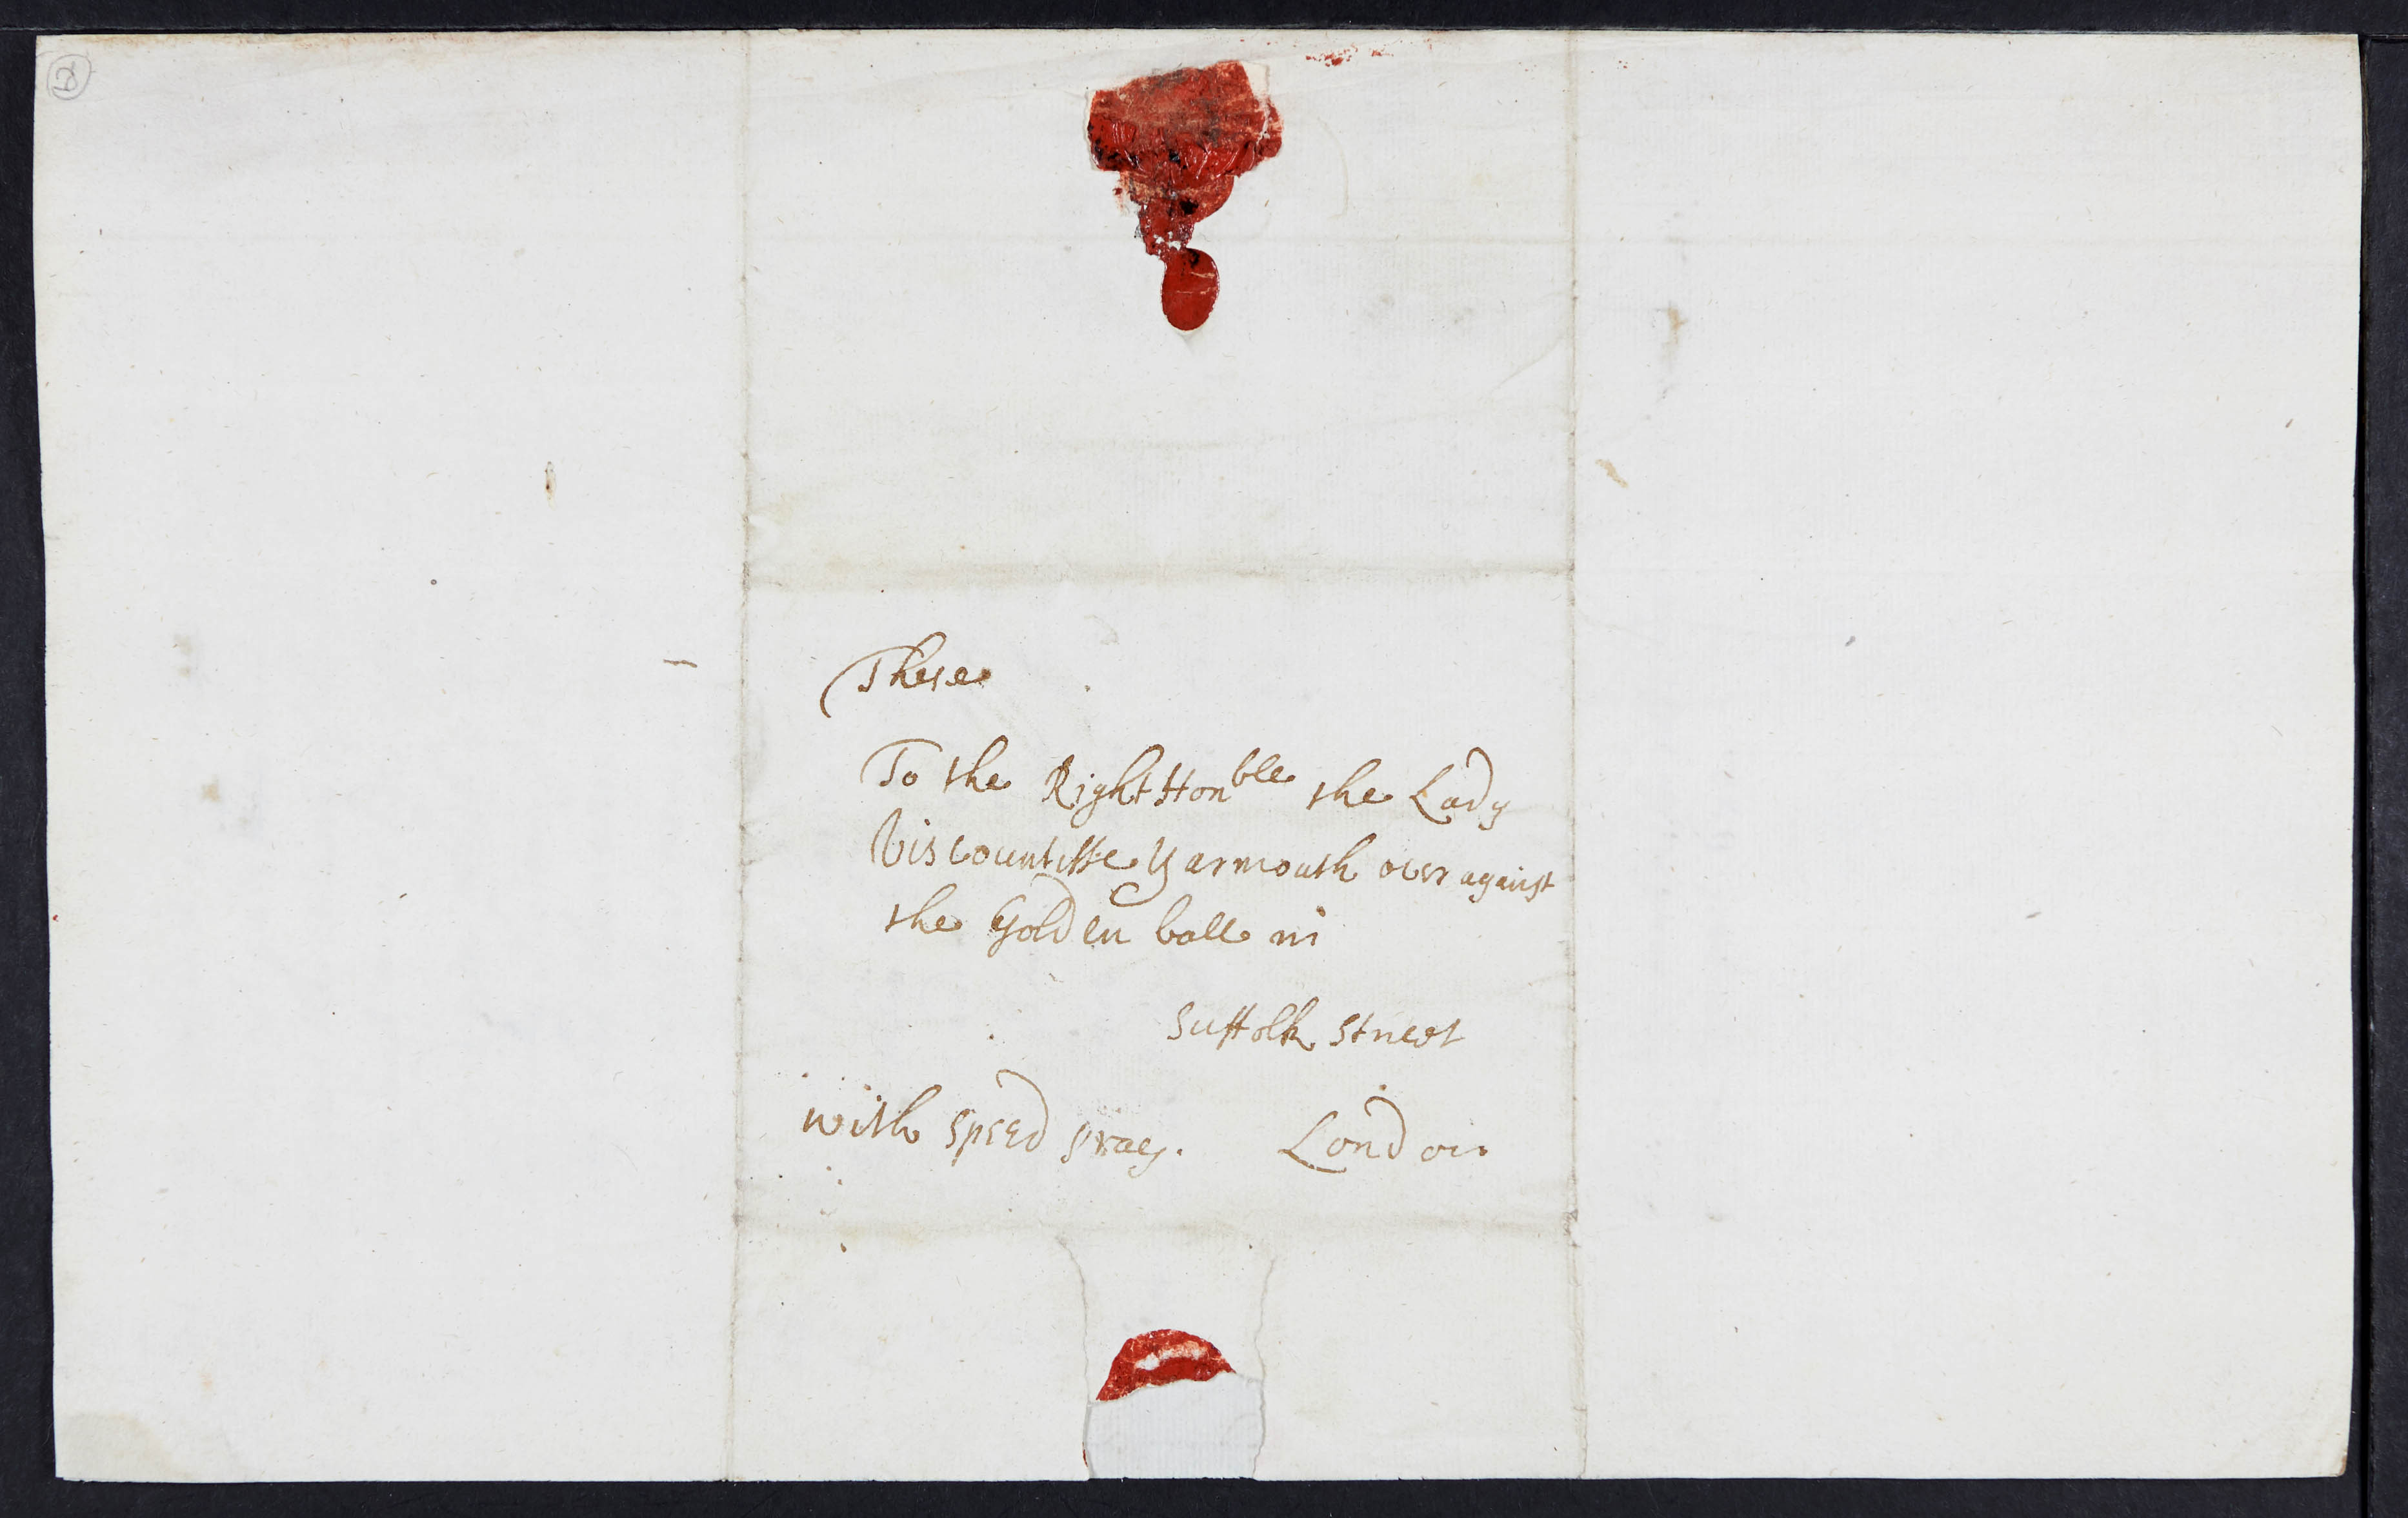 These
To the Right Honble the Lady
Viscountesse Yarmouth over against
the Golden balle in
Suffolk Street
with speed pray. London